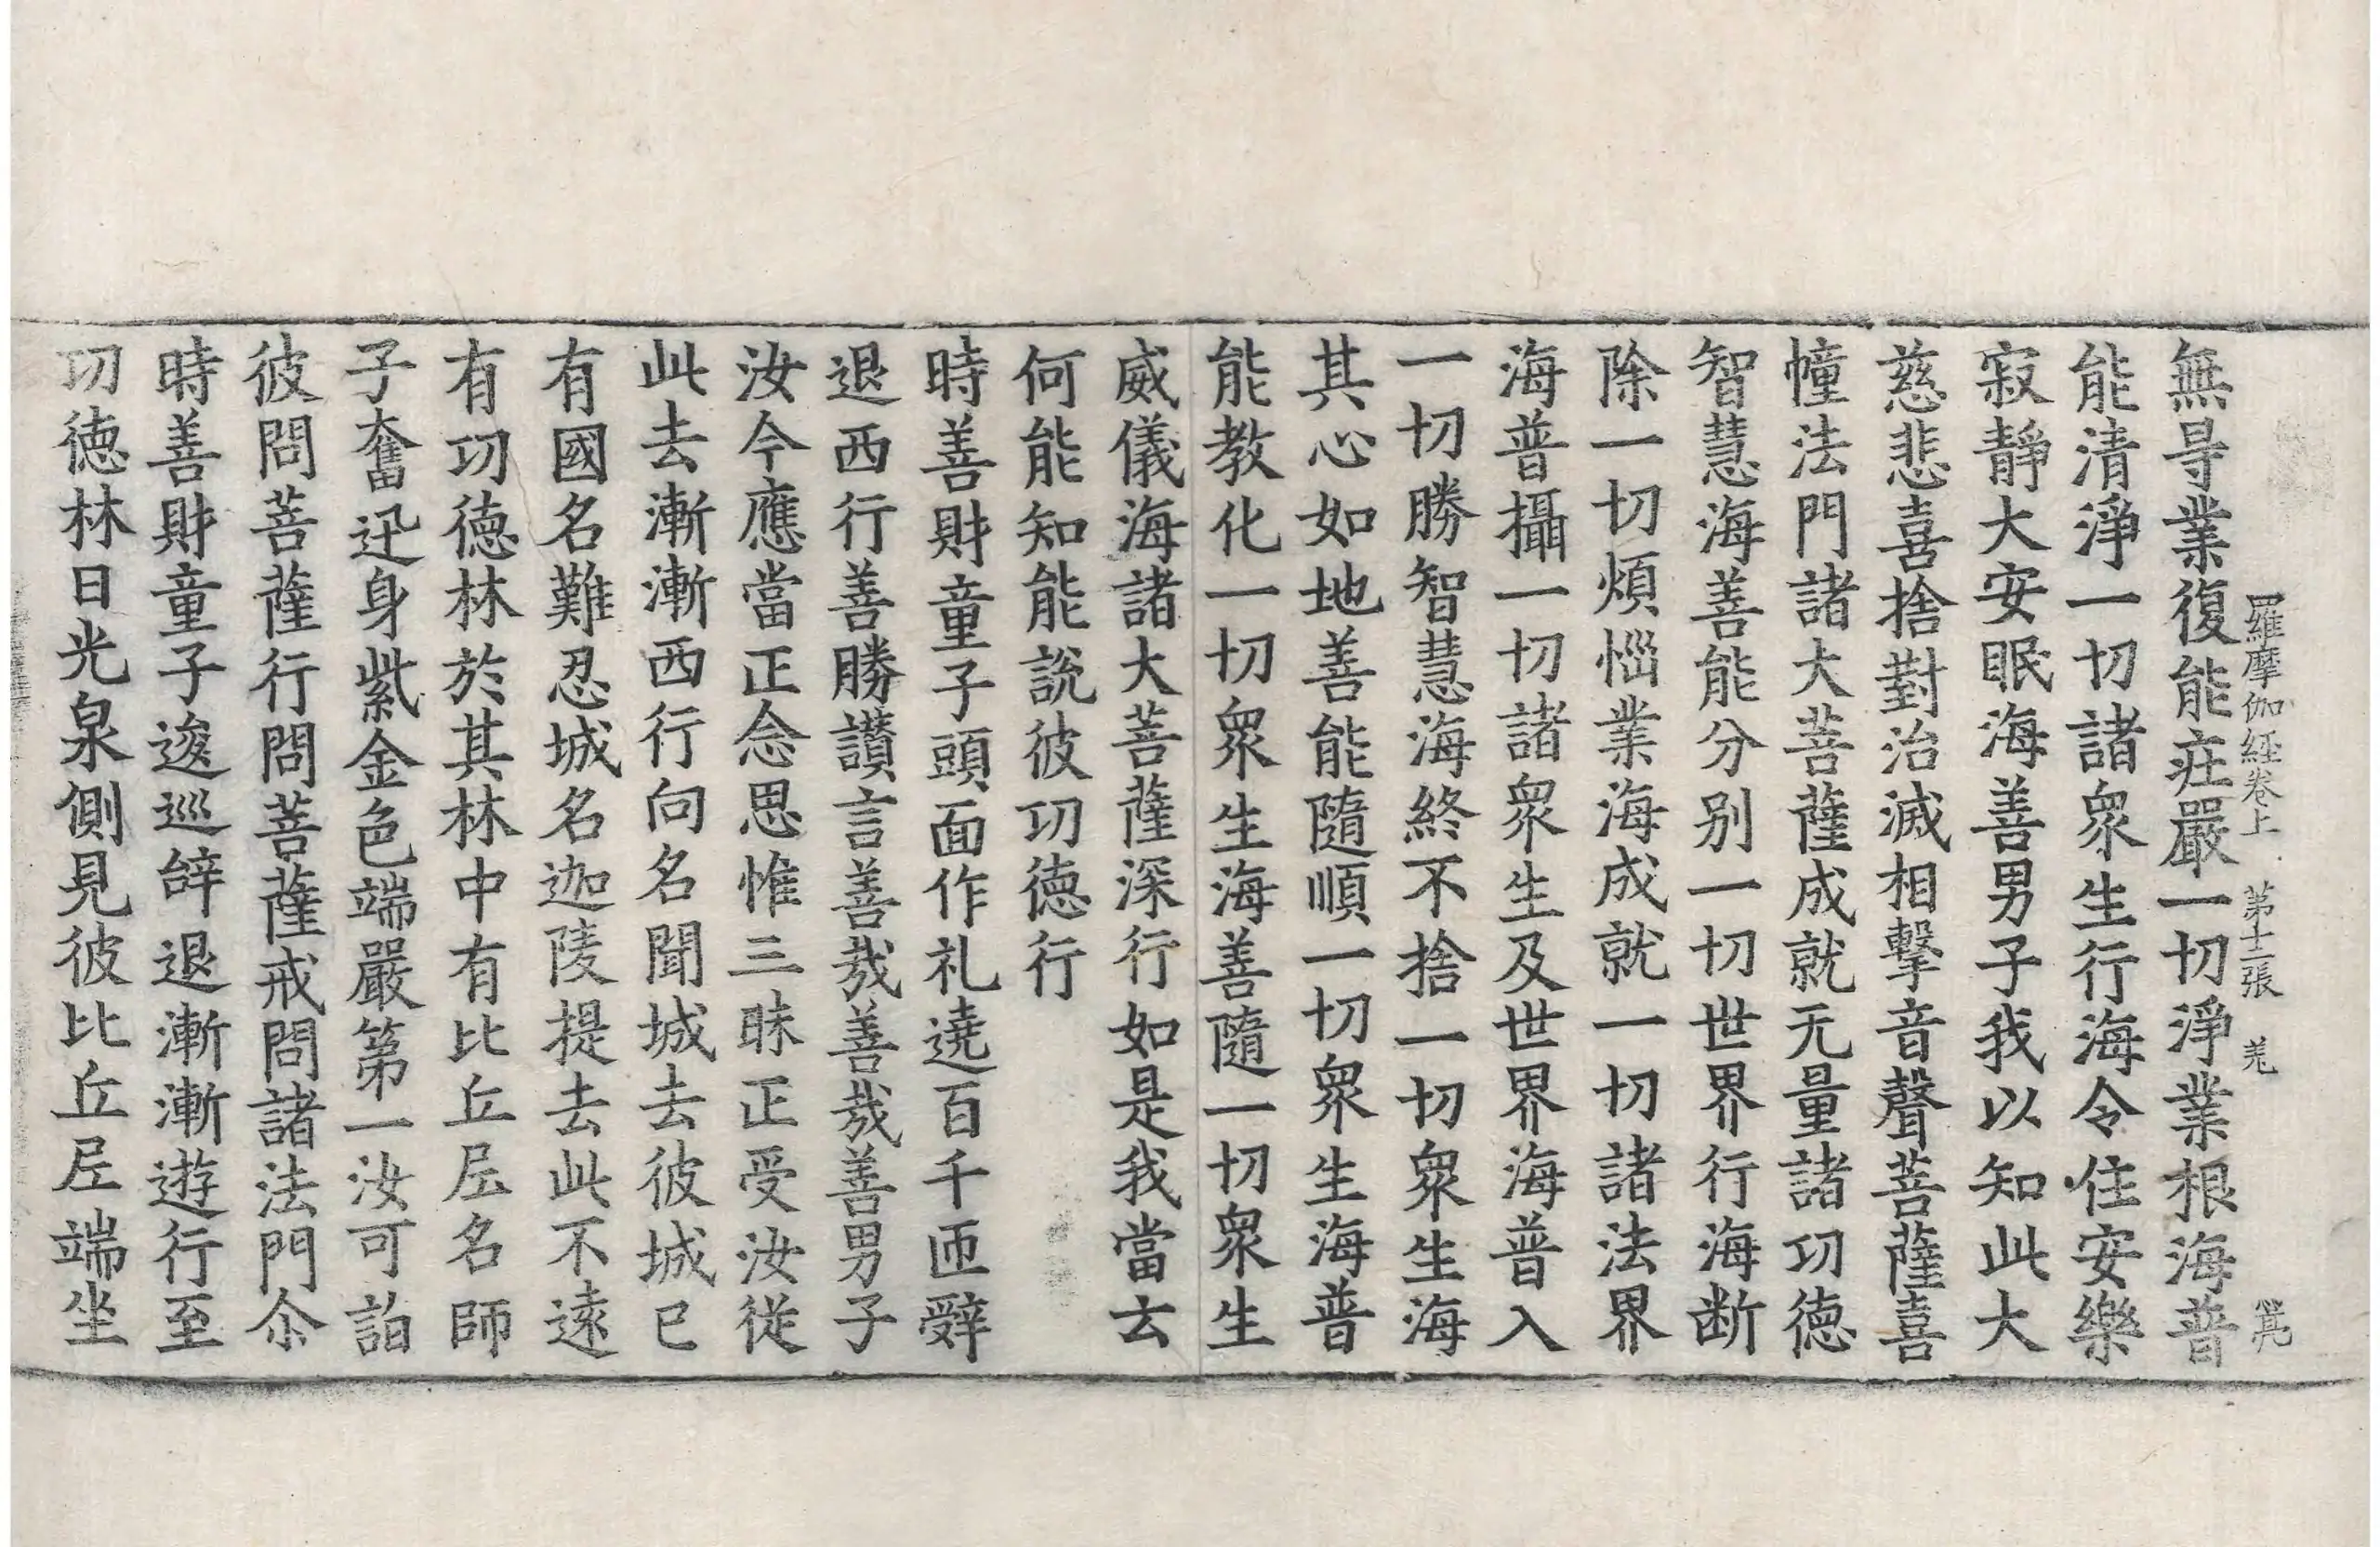 羅摩伽経卷上　第十二張　羌
無㝵業復能莊嚴一切淨業根海普
能清淨一切諸衆生行海令住安樂
寂靜大安眠海善男子我以知此大
慈悲喜捨對治滅相擊音聲菩薩喜
幢法門諸大菩薩成就无量諸功德
智慧海善能分别一切世界行海断
除一切煩惱業海成就一切諸法界
海普攝一切諸衆生及世界海普入
一切勝智慧海終不捨一切衆生海
其心如地善能隨順一切衆生海普
能教化一切衆生海善隨一切衆生
威儀海諸大菩薩深行如是我當云
何能知能說彼功德行
時善財童子頭面作礼遶百千匝辭
退西行善勝讃言善哉善哉善男子
汝今應當正念思惟三昧正受汝從
此去漸漸西行向名聞城去彼城已
有國名難忍城名迦陵提去此不遠
有功德林於其林中有比丘𡰱名師
子奮迅身紫金色端嚴第一汝可詣
彼問菩薩行問菩薩戒問諸法門尒
時善財童子逡巡辝退漸漸遊行至
功德林日光泉側見彼比丘𡰱端坐